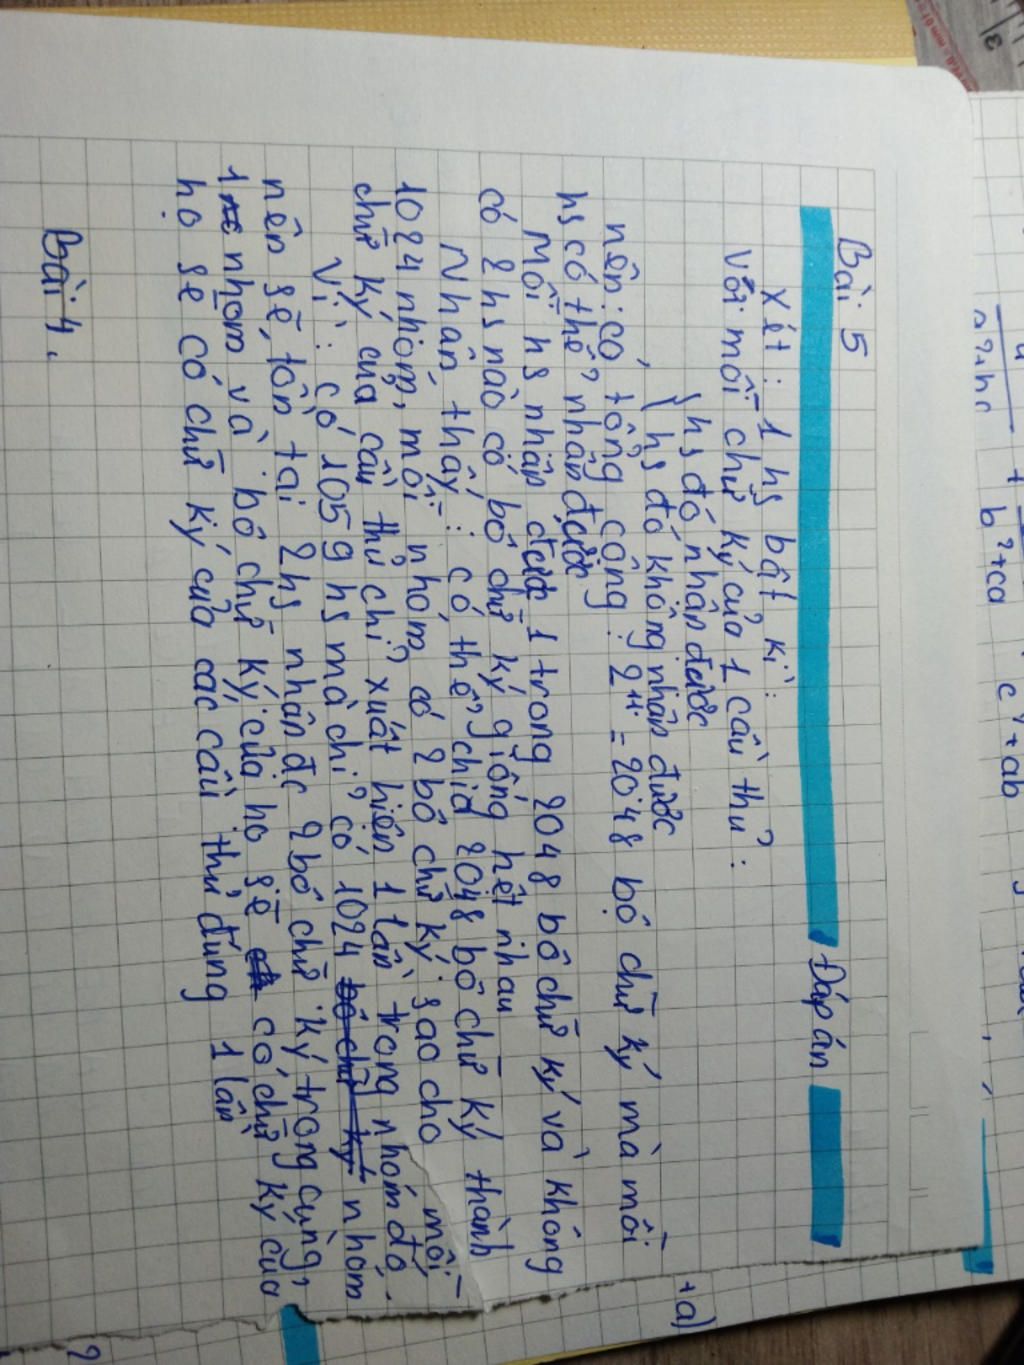 Đáp án
Bài 5
Xét: 1 hs bất kì:
Với mỗi chữ ký của 1 cầu thủ:
{ hs đó nhận được
{ hs đó không nhận được
nên: có tổng cộng: 2¹¹ = 2048 bộ chữ ký mà mỗi
hs có thể nhận được
Mỗi hs nhận được 1 trong 2048 bộ chữ ký và không
có 2 hs nào có bộ chữ ký giống hệt nhau
Nhận thấy: có thể chia 2048 bộ chữ ký thành
1024 nhóm, mỗi nhóm có 2 bộ chữ ký sao cho mỗi
chữ ký của cầu thủ chỉ xuất hiện 1 lần trong nhóm đó.
Vì: có 1059 hs mà chỉ có 1024 bộ chữ ký nhóm
nên sẽ tồn tại 2 hs nhận đc 2 bộ chữ ký trong cùng
1 nhóm và bộ chữ ký của họ sẽ có chữ ký của
họ sẽ có chữ ký của các cầu thủ đúng 1 lần
Bài 4.
b²+ca
c²+ab
+a)
2